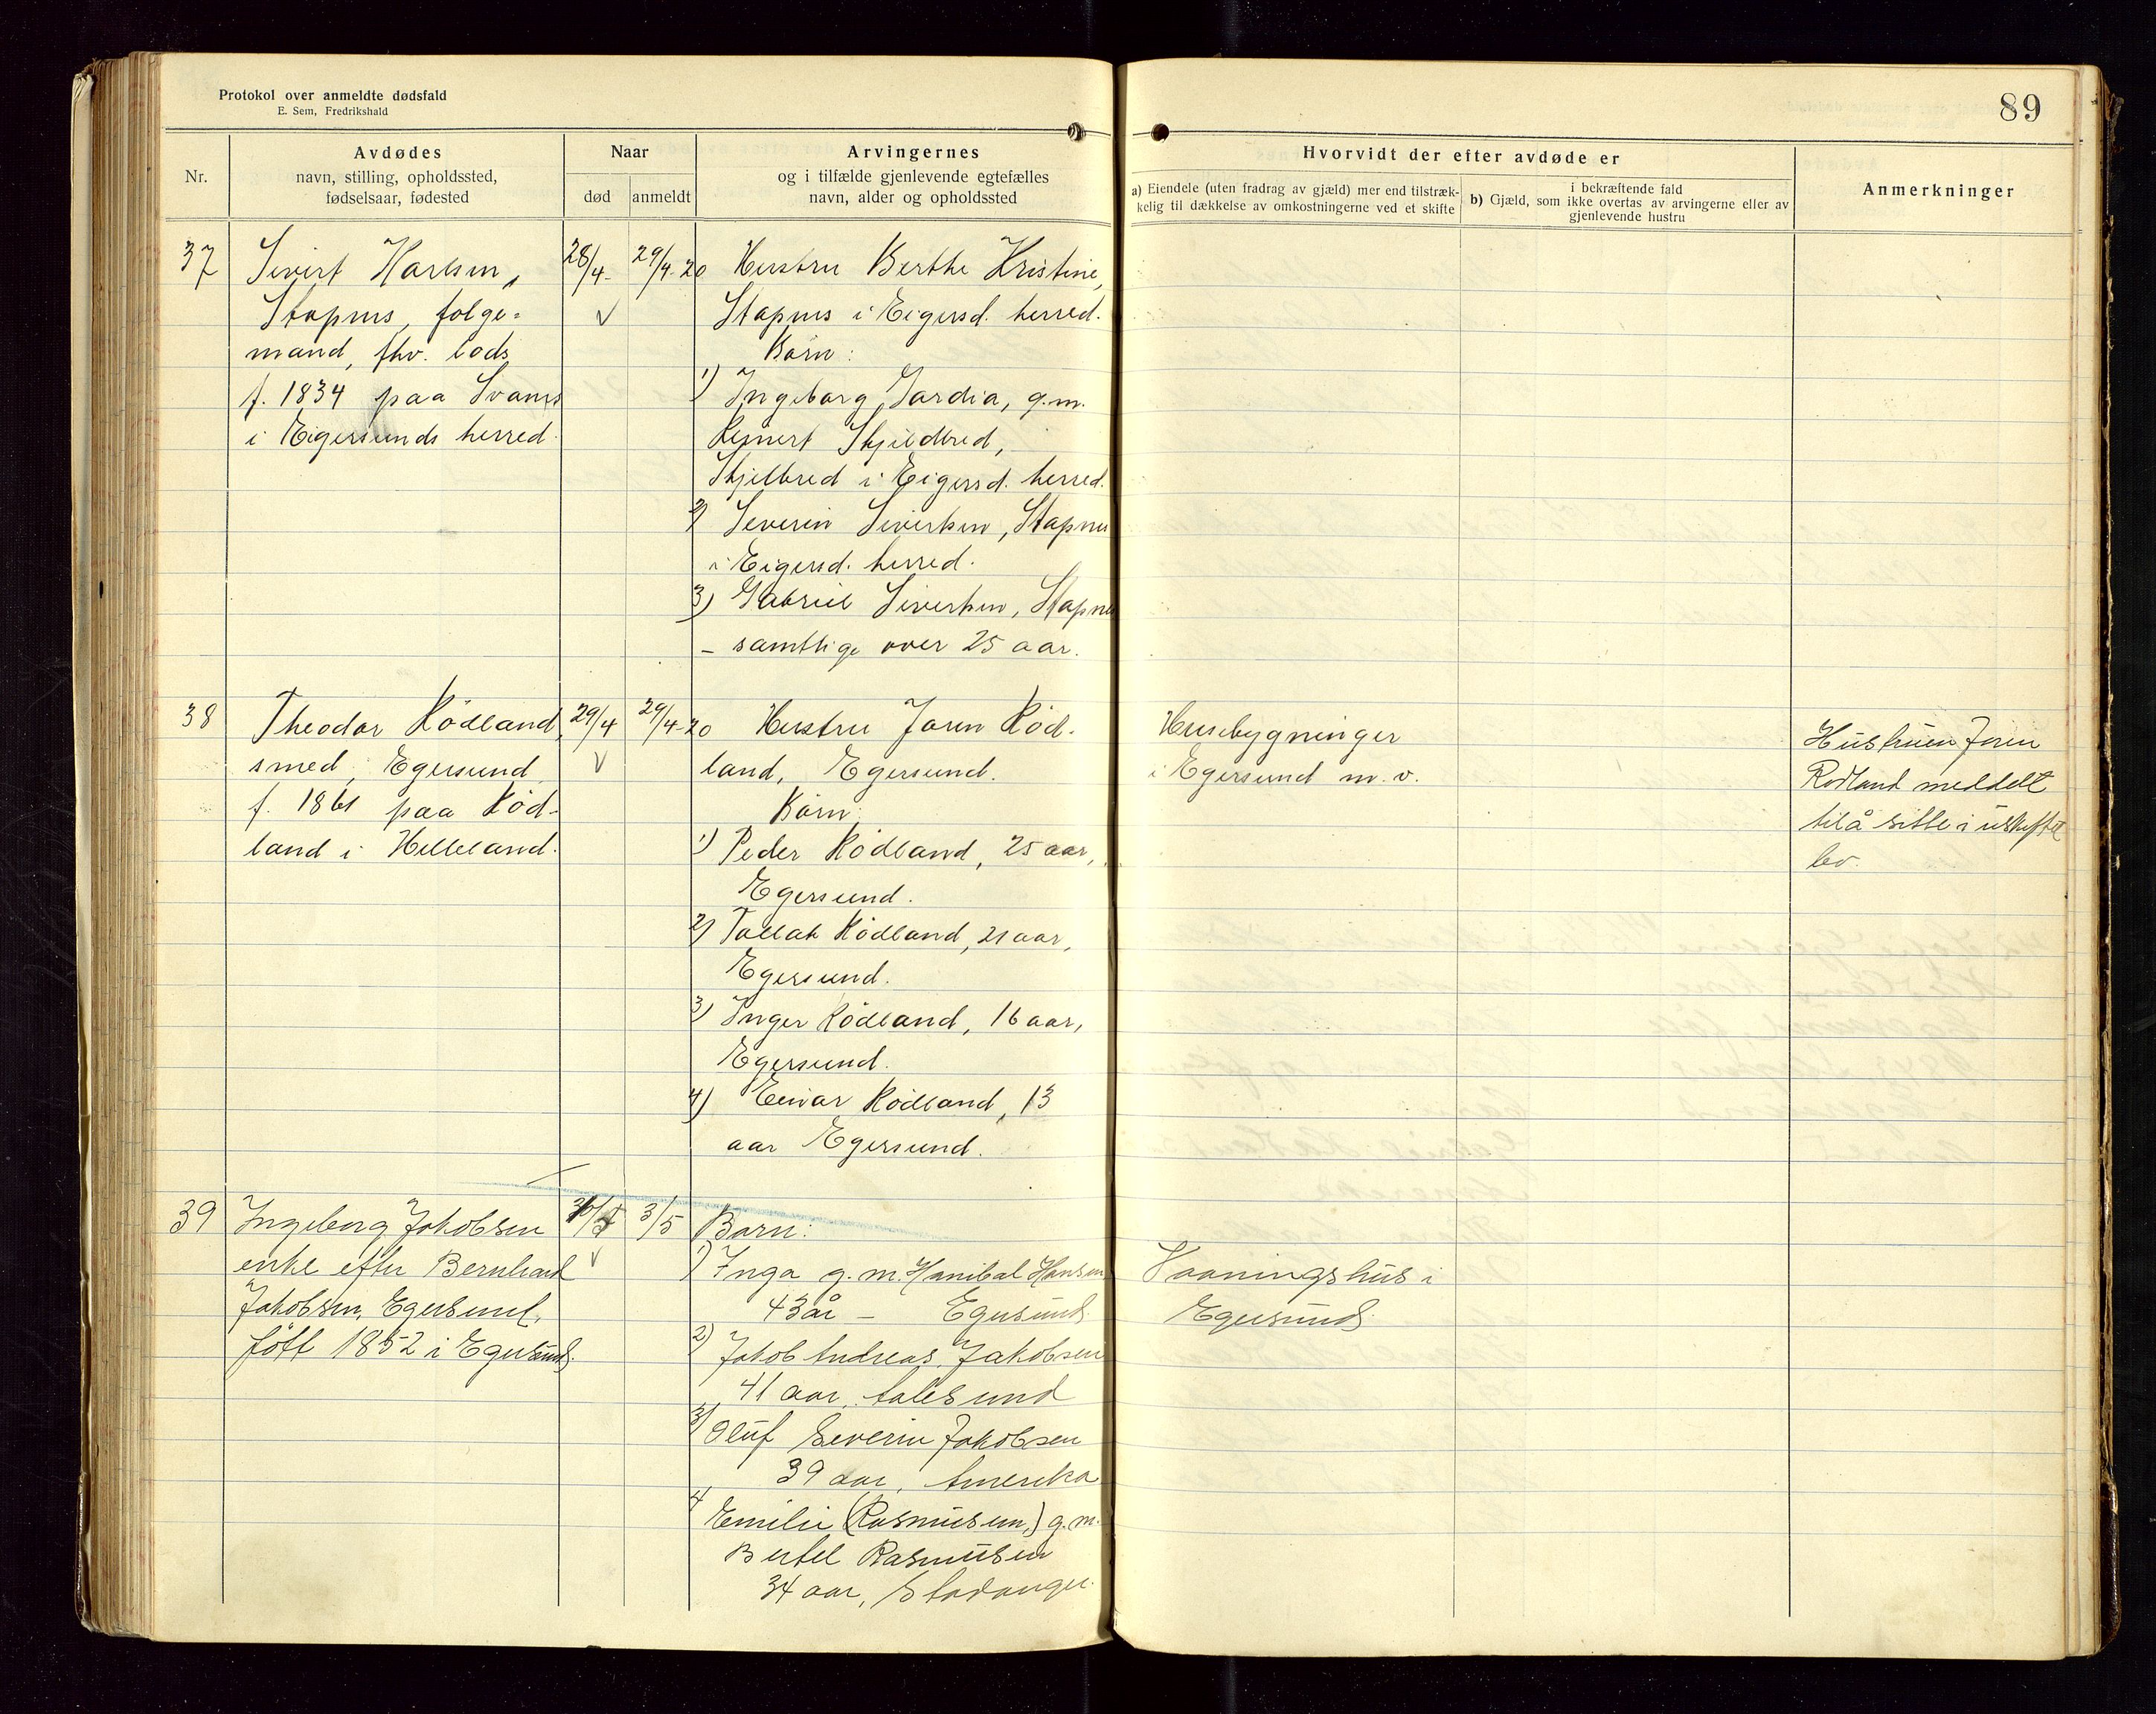 Protokol over anmeldte dødsfald
E. Sem, Fredrikshald
89
Nr.
Avdødes
navn, stilling, opholdssted,
fødselsaar, fødested
Naar
død
anmeldt
Arvingernes
og i tilfælde gjenlevende egtefælles
navn, alder og opholdssted
Hvorvidt der efter avdøde er
a) Eiendele (uten fradrag av gjæld) mer end tilstræk-
kelig til dækkelse av omkostningerne ved et skifte
i bekræftende fald
b) Gjæld, som ikke overtas av arvingerne eller av
gjenlevende hustru
Anmerkninger
37
Sivert Karlsen,
Stapnes, følge=
mand, fhv. lods
f. 1834 paa Svanes
i Eigersunds herred.
28/4-
29/4-20
Hustru Berthe Kristine,
Stapnes i Eigersd. herred.
Børn:
1) Ingeborg Jardia, g.m.
Reinert Skjeldbred,
Skjelbred i Eigersd. herred.
2) Severin Sivertsen, Stapnes
i Eigersd. herred.
3) Gabriel Sivertsen, Stapnes
- samtlige over 25 aar.
38
Theodor Rødland,
smed, Egersund
f. 1861 paa Rød-
land i Helleland.
29/4
29/4-20
Hustru Joren Rød-
land, Egersund.
Børn:
1) Peder Rødland, 25 aar,
Egersund.
2) Tallak Rødland, 21 aar,
Egersund.
3) Inger Rødland, 16 aar,
Egersund.
4) Einar Rødland, 13
aar Egersund.
Husebygninger
i Egersund m.v.
Hustruen Joren
Rødland meddelt
til å sitte i uskiftet
bo.
39
Ingeborg Jakobsen
enke efter Bernhard
Jakobsen, Egersund,
født 1852 i Egersund.
3/5
Barn:
1) Inga g.m. Hanibal Hansen
43 år - Egersund.
2) Jakob Andreas Jakobsen
41 aar, Aalesund
3) Oluf Severin Jakobsen
39 aar, Amerika
4) Emilie (Rasmusen,) g.m.
Bertel Rasmusen
34 aar, Stavanger.
Vaaningshus i
Egersund.